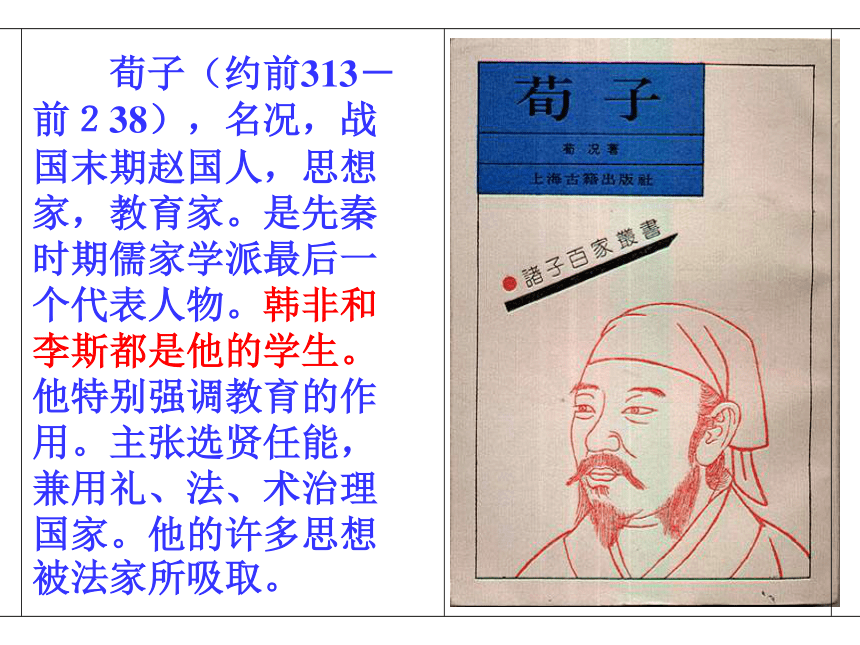 荀子（约前313－
前２38），名况，战
国末期赵国人，思想
家，教育家。是先秦
时期儒家学派最后一
个代表人物。韩非和
李斯都是他的学生。
他特别强调教育的作
用。主张选贤任能，
兼用礼、法、术治理
国家。他的许多思想
被法家所吸取。
荀子
荀况著
上海古籍出版社
諸子百家叢書